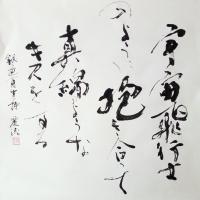 宇宙飛行士
のように抱き合って
真鍮のような
キスをする